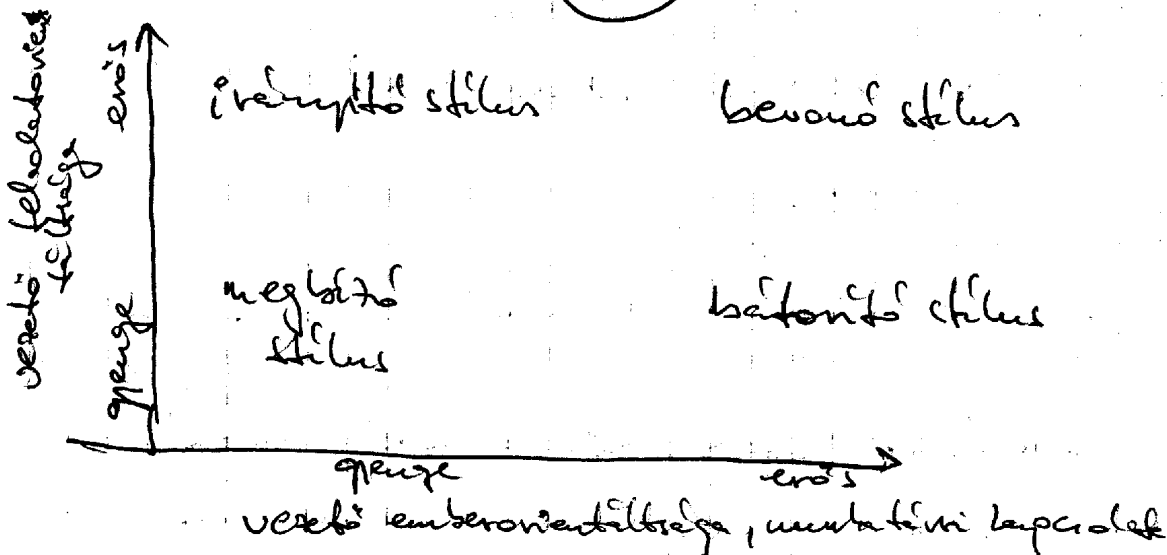 vezető feladatorien
táltsága
erős
gyenge
irányító stílus
bevonó stílus
megbízó
stílus
bátorító stílus
gyenge
erős
vezető emberorientáltsága, munkatársi kapcsolat